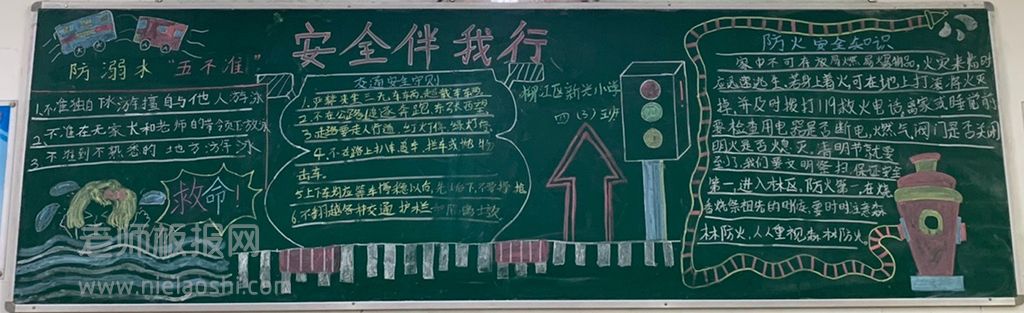 安全伴我行
防溺水"五不准"
1.不准独自游泳擅自与他人游泳
2.不准在无家长和老师的带领下游泳
3.不准到不熟悉的地方游泳
救命!
交通安全守则
2.不在公路追逐奔跑,东张西望
3.走路要走人行道,红灯停,绿灯行
4.不在路上扒车追车,拦车或抛物
击车。
6.不翻越各种交通护栏
柳江区新兴小学
四(3)班
防火安全知识
家中不可存放易燃易爆物品,火灾来临时
应迅速逃生,若身上着火可在地上打滚将火灭
掉,并及时拨打119救火电话,离家或睡觉前
要检查用电器是否断电,燃气阀门是否关闭
明火是否熄灭,清明节就要
到了,我们要文明祭扫,保证安全
第一,进入林区,防火第一,在烧
香烧祭祖先的时候,要时时注意森
林防火,人人重视森林防火。
老师板报网
www.nielaoshi.com